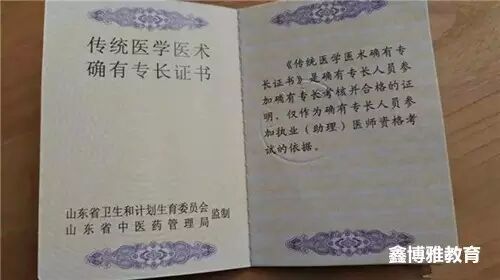 传统医学医术
确有专长证书
山东省卫生和计划生育委员会
山东省中医药管理局
监制
《传统医学医术确有专
长证书》是确有专长人员参
加确有专长考核并合格的证
明，仅作为确有专长人员参
加执业（助理）医师资格考
试的依据。
鑫博雅教育